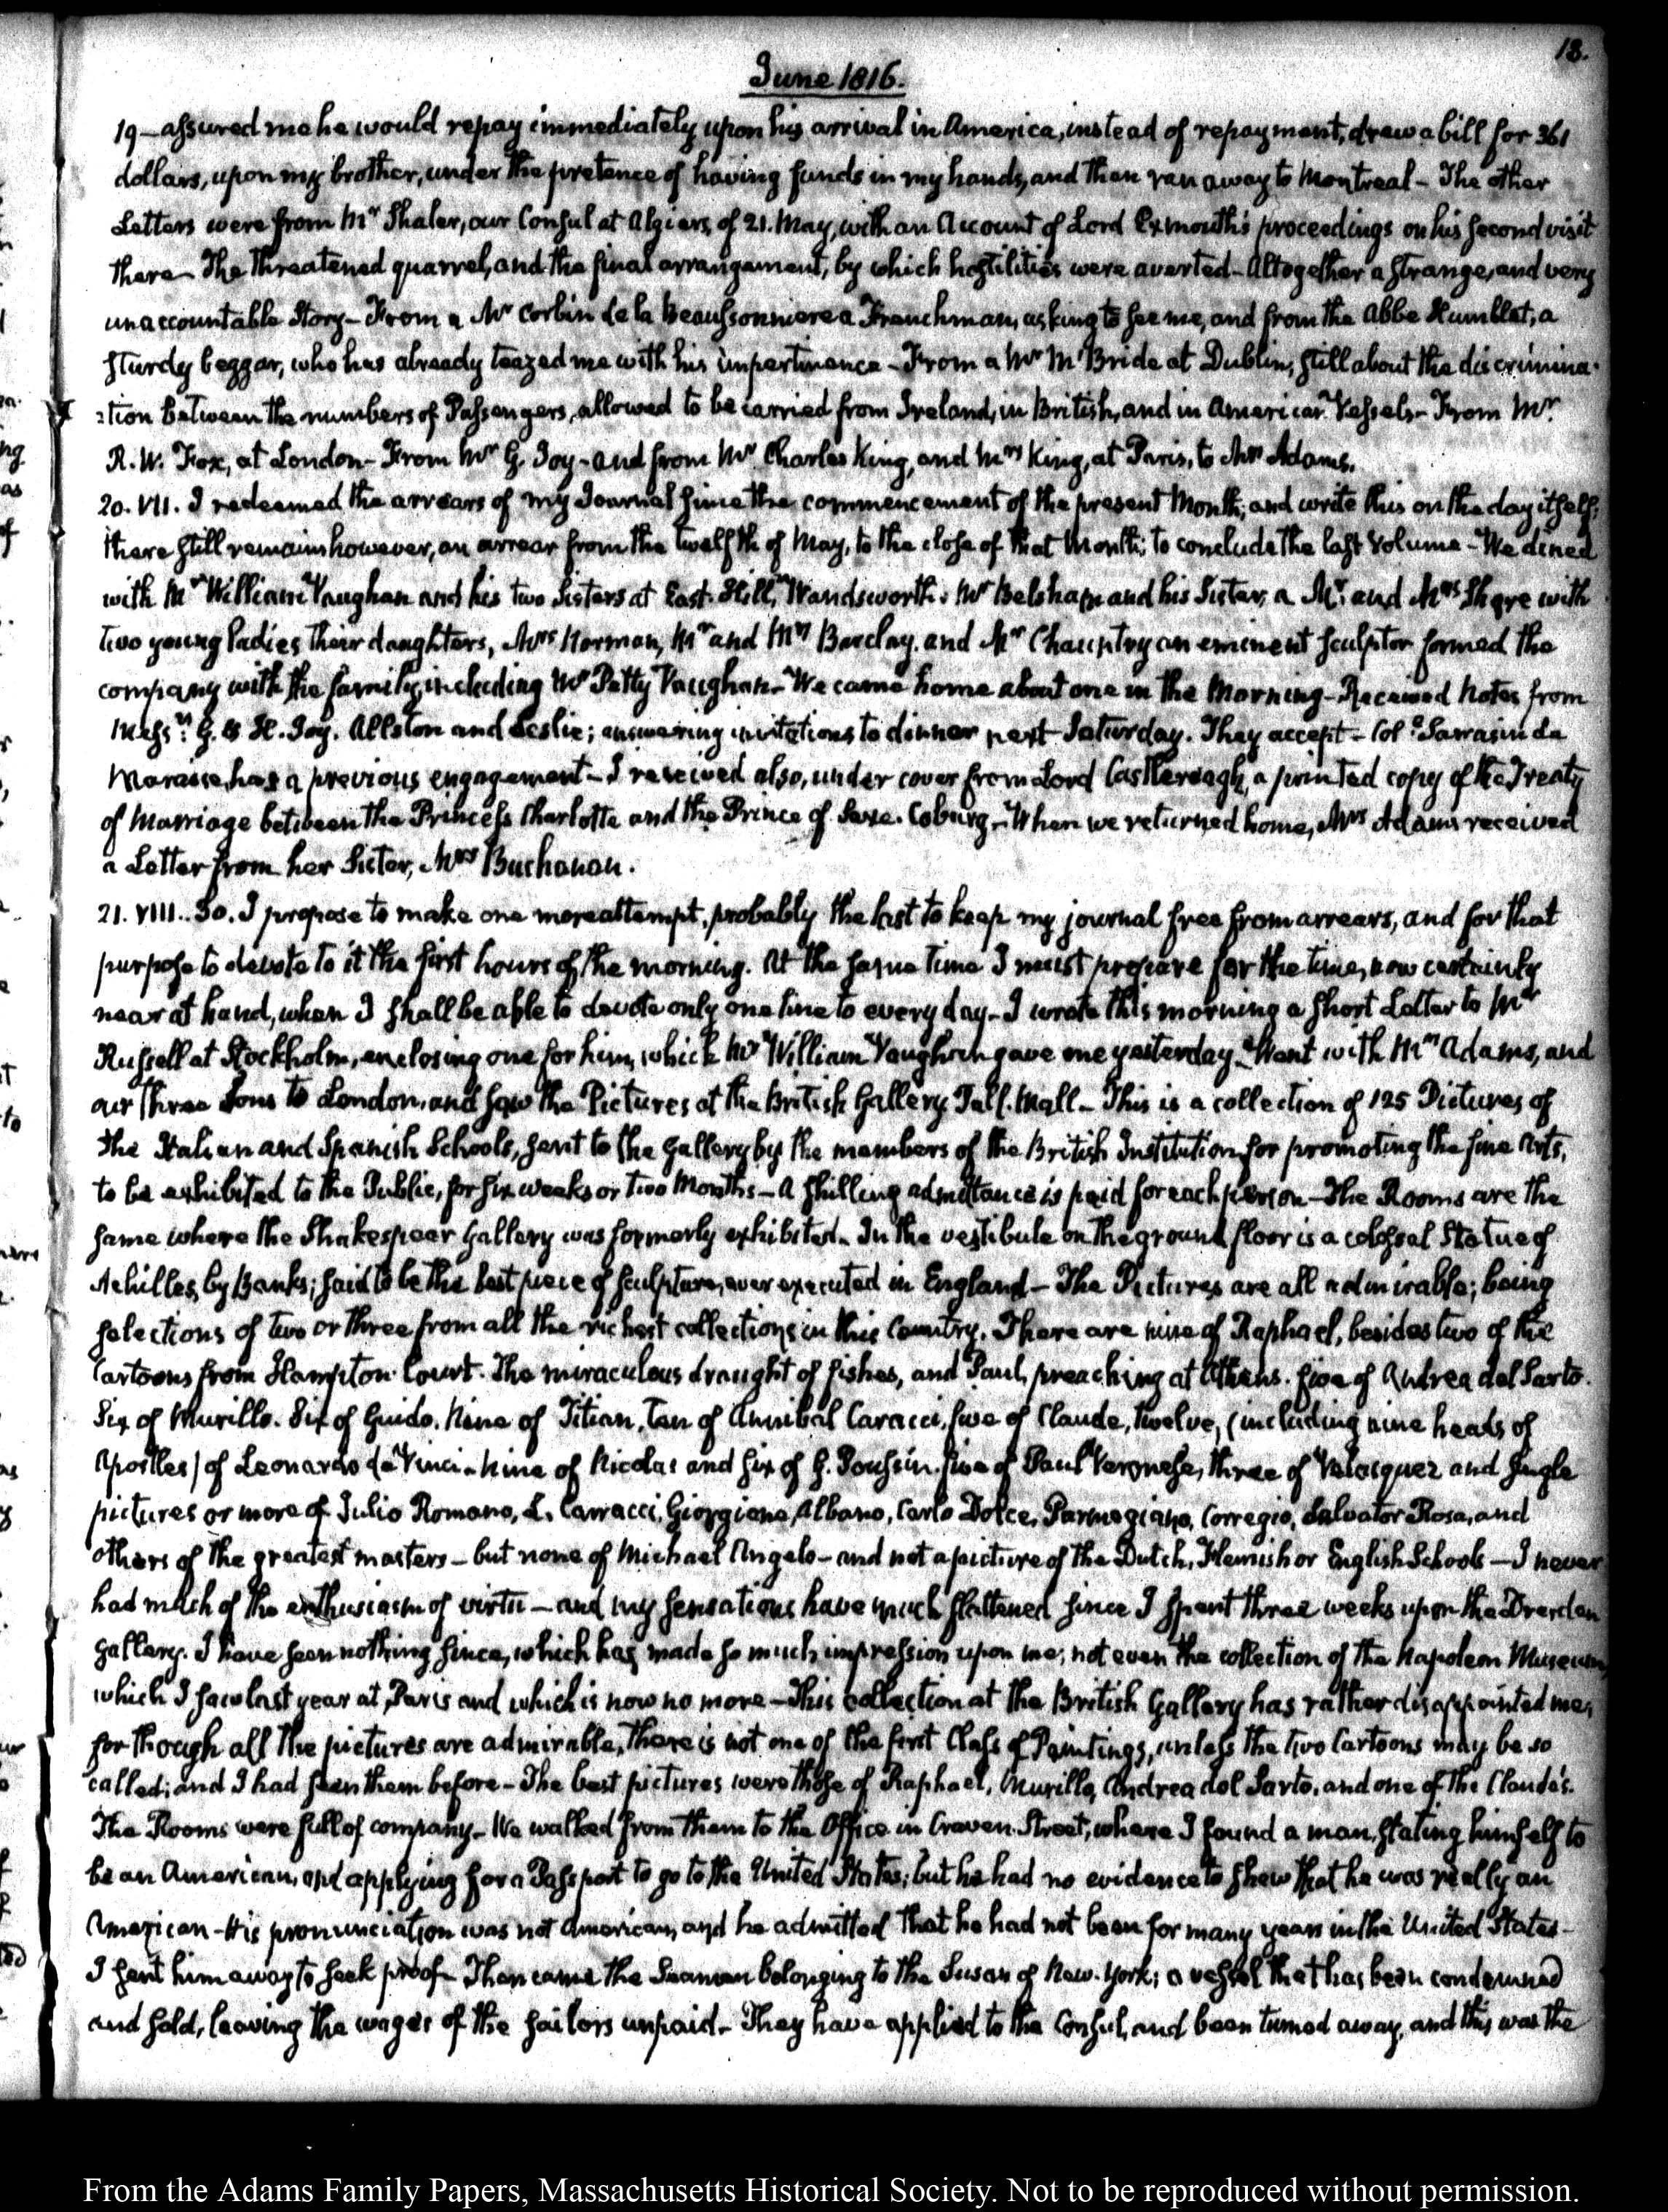 18.
June 1816.
19 – assured me he would repay immediately upon his arrival in America, instead of repayment, drew a bill for 361
dollars, upon my brother, under the pretence of having funds in my hands, and then ran away to Montreal – The other
Letters were from Mr Shaler, our Consul at Algiers, of 21. May, with an Account of Lord Exmouth's proceedings on his second visit
there – The threatened quarrel, and the final arrangement, by which hostilities were averted – Altogether a strange, and very
unaccountable Story – From a Mr Corbin de la Beaussonniere a Frenchman, asking to see me, and from the Abbe Humblet, a
sturdy beggar, who has already teazed me with his impertinence – From a Mr McBride at Dublin, still about the discrimina-
:tion between the numbers of Passengers, allowed to be carried from Ireland, in British, and in American Vessels – From Mr
R. W. Fox, at London – From Mr G. Joy – and from Mr Charles King, and Mrs King, at Paris, to Mrs Adams.
20. VII. I redeemed the arrears of my Journal since the commencement of the present Month; and write this on the day itself;
there still remains however, an arrear from the twelfth of May, to the close of that Month; to conclude the last volume – We dined
with Mr William Vaughan and his two Sisters at East-Hill, Wandsworth. Mr Belsham and his Sister, a Mr and Mrs Shore with
two young Ladies their daughters, Mrs Norman, Mr and Mrs Barclay, and Mr Chauntry an eminent Sculptor formed the
company with the family, including Mr Petty Vaughan – We came home about one in the Morning – Received Notes from
Messrs G. & H. Joy, Allston and Leslie; answering invitations to dinner next Saturday. They accept – Coll Sarrasin de
Maraise, has a previous engagement – I received also, under cover from Lord Castlereagh, a printed copy of the Treaty
of Marriage between the Princess Charlotte and the Prince of Saxe-Coburg – When we returned home, Mrs Adams received
a Letter from her Sister, Mrs Buchanan.
21. VIII. 30. I propose to make one more attempt, probably the last to keep my journal free from arrears, and for that
purpose to devote to it the first hours of the morning. At the same time I must prepare for the time, now certainly
near at hand, when I shall be able to devote only one line to every day – I wrote this morning a short Letter to Mr
Russell at Stockholm, enclosing one for him, which Mr William Vaughan gave me yesterday – Went with Mrs Adams, and
our three Sons to London, and saw the Pictures at the British Gallery, Pall-Mall – This is a collection of 125 Pictures of
the Italian and Spanish Schools, sent to the Gallery by the members of the British Institution for promoting the fine Arts,
to be exhibited to the Public, for six weeks or two Months – A shilling admittance is paid for each person – The Rooms are the
same where the Shakespear Gallery was formerly exhibited – In the vestibule on the ground floor is a colossal Statue of
Achilles, by Banks; said to be the best piece of sculpture, ever executed in England – The Pictures are all admirable; being
selections of two or three from all the richest collections in this Country. There are nine of Raphael, besides two of the
Cartoons from Hampton Court. The miraculous draught of fishes, and Paul, preaching at Athens. five of Andrea del Sarto.
Six of Murillo. Six of Guido. Nine of Titian, Ten of Annibal Caracci, five of Claude, twelve, (including nine heads of
Apostles) of Leonardo da Vinci – Nine of Nicolas and six of G. Poussin. five of Paul Veronese, three of Velasquez and single
pictures or more of Julio Romano, L. Carracci, Giorgione, Albano, Carlo Dolce, Parmegiano, Corregio, Salvator Rosa, and
others of the greatest masters – but none of Michael Angelo – and not a picture of the Dutch, Flemish or English Schools – I never
had much of the enthusiasm of virtu – and my sensations have much flattened since I spent three weeks upon the Dresden
gallery. I have seen nothing since, which has made so much impression upon me; not even the collection of the Napoleon Museum,
which I saw last year at Paris and which is now no more – This collection at the British Gallery has rather disappointed me;
for though all the pictures are admirable, there is not one of the first Class of Paintings, unless the two Cartoons may be so
called; and I had seen them before – The best pictures were those of Raphael, Murillo, Andrea del Sarto, and one of the Claude's.
The Rooms were full of company – We walked from them to the Office in Craven Street, where I found a man, stating himself to
be an American, and applying for a Passport to go to the United States; but he had no evidence to shew that he was really an
American – His pronunciation was not American, and he admitted that he had not been for many years in the United States –
I sent him away to seek proof – Then came the Seamen belonging to the Susan of New-York; a vessel that has been condemned
and sold, leaving the wages of the sailors unpaid – They have applied to the Consul, and been turned away, and this was the
From the Adams Family Papers, Massachusetts Historical Society. Not to be reproduced without permission.